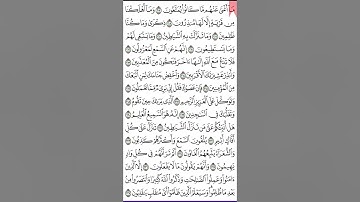 مَآ أَغْنَىٰ عَنْهُم مَّا كَانُوا۟ يُمَتَّعُونَ ۝ وَمَآ أَهْلَكْنَا
مِن قَرْيَةٍ إِلَّا لَهَا مُنذِرُونَ ۝ ذِكْرَىٰ وَمَا كُنَّا
ظَٰلِمِينَ ۝ وَمَا تَنَزَّلَتْ بِهِ ٱلشَّيَٰطِينُ ۝ وَمَا يَنۢبَغِى لَهُمْ
وَمَا يَسْتَطِيعُونَ ۝ إِنَّهُمْ عَنِ ٱلسَّمْعِ لَمَعْزُولُونَ ۝
فَلَا تَدْعُ مَعَ ٱللَّهِ إِلَٰهًا ءَاخَرَ فَتَكُونَ مِنَ ٱلْمُعَذَّبِينَ ۝
وَأَنذِرْ عَشِيرَتَكَ ٱلْأَقْرَبِينَ ۝ وَٱخْفِضْ جَنَاحَكَ لِمَنِ ٱتَّبَعَكَ
مِنَ ٱلْمُؤْمِنِينَ ۝ فَإِنْ عَصَوْكَ فَقُلْ إِنِّى بَرِىٓءٌ مِّمَّا تَعْمَلُونَ ۝
وَتَوَكَّلْ عَلَى ٱلْعَزِيزِ ٱلرَّحِيمِ ۝ ٱلَّذِى يَرَىٰكَ حِينَ تَقُومُ ۝
وَتَقَلُّبَكَ فِى ٱلسَّٰجِدِينَ ۝ إِنَّهُۥ هُوَ ٱلسَّمِيعُ ٱلْعَلِيمُ ۝
هَلْ أُنَبِّئُكُمْ عَلَىٰ مَن تَنَزَّلُ ٱلشَّيَٰطِينُ ۝ تَنَزَّلُ عَلَىٰ كُلِّ
أَفَّاكٍ أَثِيمٍ ۝ يُلْقُونَ ٱلسَّمْعَ وَأَكْثَرُهُمْ كَٰذِبُونَ ۝
وَٱلشُّعَرَآءُ يَتَّبِعُهُمُ ٱلْغَاوُۥنَ ۝ أَلَمْ تَرَ أَنَّهُمْ فِى كُلِّ وَادٍ
يَهِيمُونَ ۝ وَأَنَّهُمْ يَقُولُونَ مَا لَا يَفْعَلُونَ ۝ إِلَّا ٱلَّذِينَ
ءَامَنُوا۟ وَعَمِلُوا۟ ٱلصَّٰلِحَٰتِ وَذَكَرُوا۟ ٱللَّهَ كَثِيرًا وَٱنتَصَرُوا۟ مِنۢ
بَعْدِ مَا ظُلِمُوا۟ وَسَيَعْلَمُ ٱلَّذِينَ ظَلَمُوٓا۟ أَىَّ مُنقَلَبٍ يَنقَلِبُونَ ۝